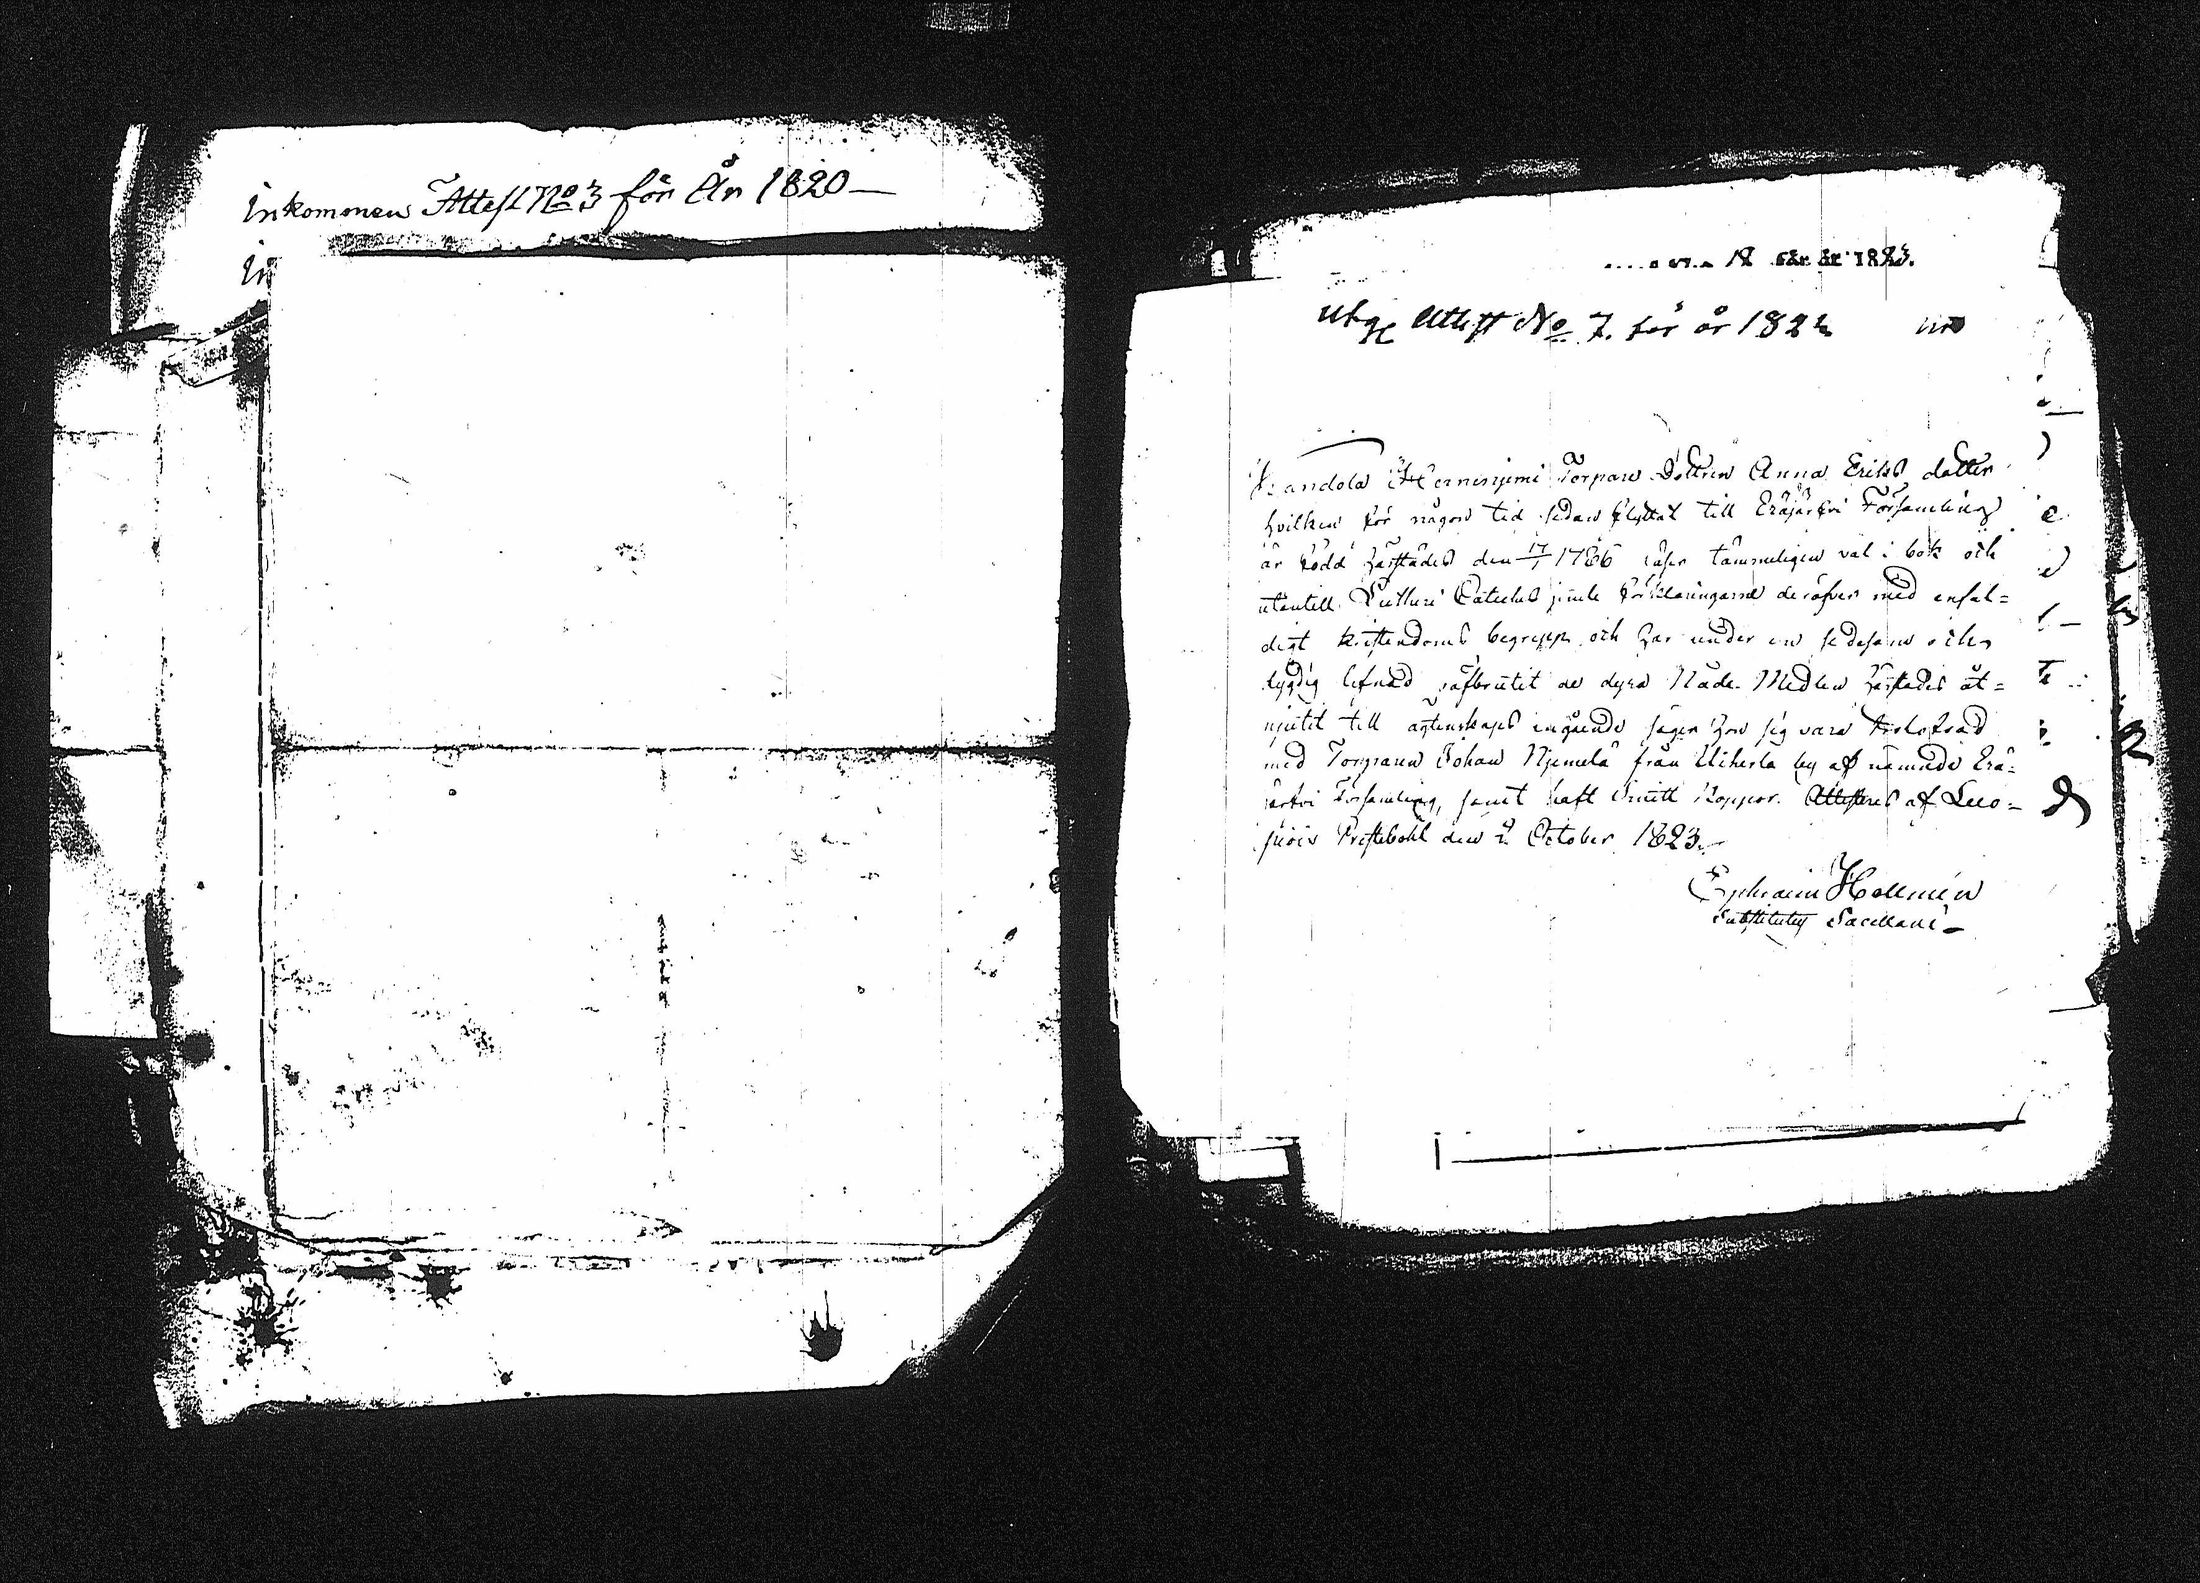 Inkommen Attest No 3 för År 1820 —
In
12 för år 1823.
Utg: Attest No 7. för år 182
Torpare Dottren Anna Eriks dotter
hvilken för någon tid sedan flyttat till Eräjärfvi Församling
är född härstädes den 17/1 1786 läser tämmeligen väl i bok och
utantill Lutheri Cateches jemte förklaringarne deröfver med enfal=
digt kristendoms begrepp och har under en sedesam och
lydig lefnad oafbrutit de dyra Nåde Medlen härstädes åt=
njutit till ägtenskaps ingående säger hon sig vara trolofvad
med Torparen Johan Njemelä från Uiherla by af nämnde Erä=
järfvi Församling, samt haft Koppor. Attesteras af Luo=
pjois Prestebohl den 2 October 1823.
Ephraim Hellmén
Substitutus Sacellani